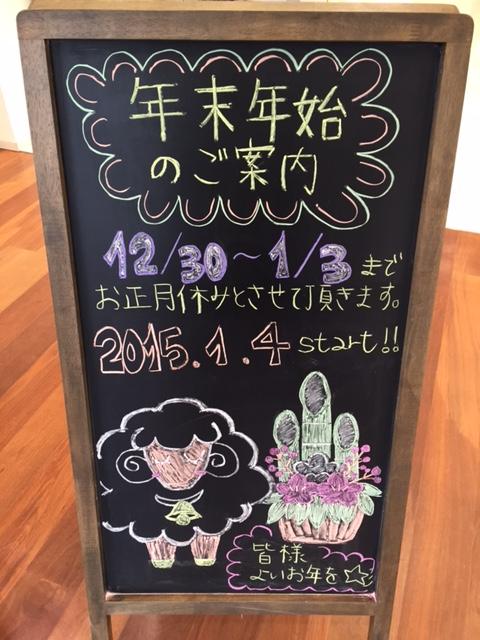 年末年始
のご案内
12/30～1/3まで
お正月休みとさせて頂きます。
2015.1.4 start!!
皆様
よいお年を☆